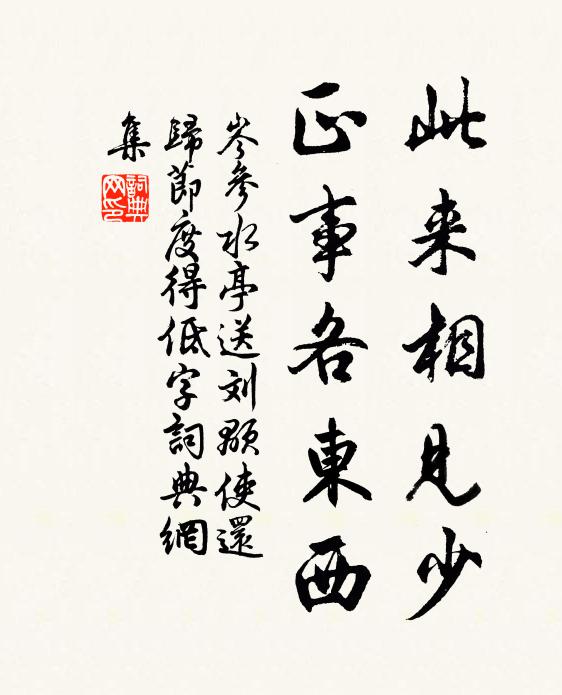 此来相見少
正事各東西
岑參水亭送刘顒使還
歸節度得低字詞典網
集
詞典网印